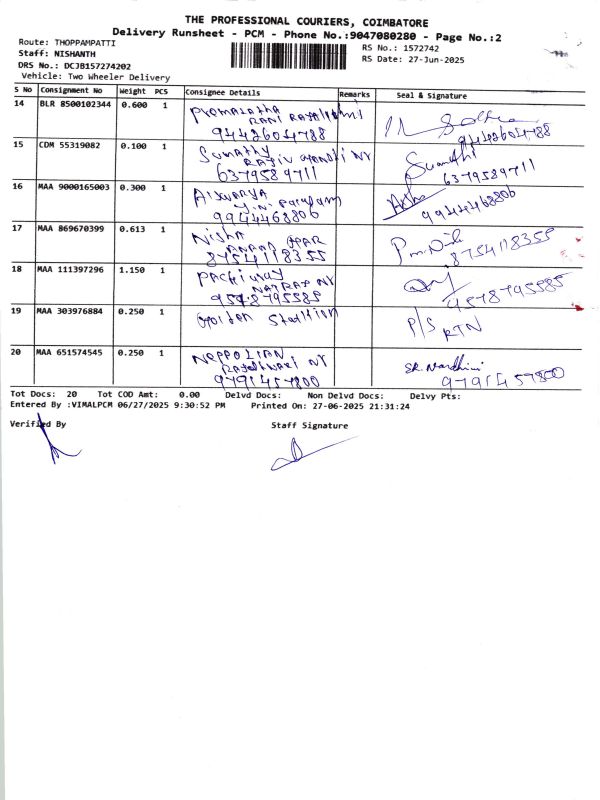 THE PROFESSIONAL COURIERS, COIMBATORE
Delivery Runsheet - PCM - Phone No.:9047080280 - Page No.:2
Route: THOPPAMPATTI
RS No.: 1572742
Staff: NISHANTH
RS Date: 27-Jun-2025
DRS No.: DCJB157274202
Vehicle: Two Wheeler Delivery
S No Consignment No Weight PCS Consignee Details Remarks Seal & Signature
14 BLR 8500102344 0.600 1
9442604788 9442604788
15 CDM 55319082 0.100 1 Sumathy Sumathi
6379589711 6379589711
16 MAA 9000165003 0.300 1 Aiswarya
9944468806 9944468806
17 MAA 869670399 0.613 1 Nisha
8754118355 8754118355
18 MAA 111397296 1.150 1
9578795585 9578795585
19 MAA 303976884 0.250 1 Golden P/S
RTN
20 MAA 651574545 0.250 1 Neppolian
9791457800 9791457800
Tot Docs: 20 Tot COD Amt: 0.00 Delvd Docs: Non Delvd Docs: Delvy Pts:
Entered By :VIMALPCM 06/27/2025 9:30:52 PM Printed On: 27-06-2025 21:31:24
Verified By Staff Signature